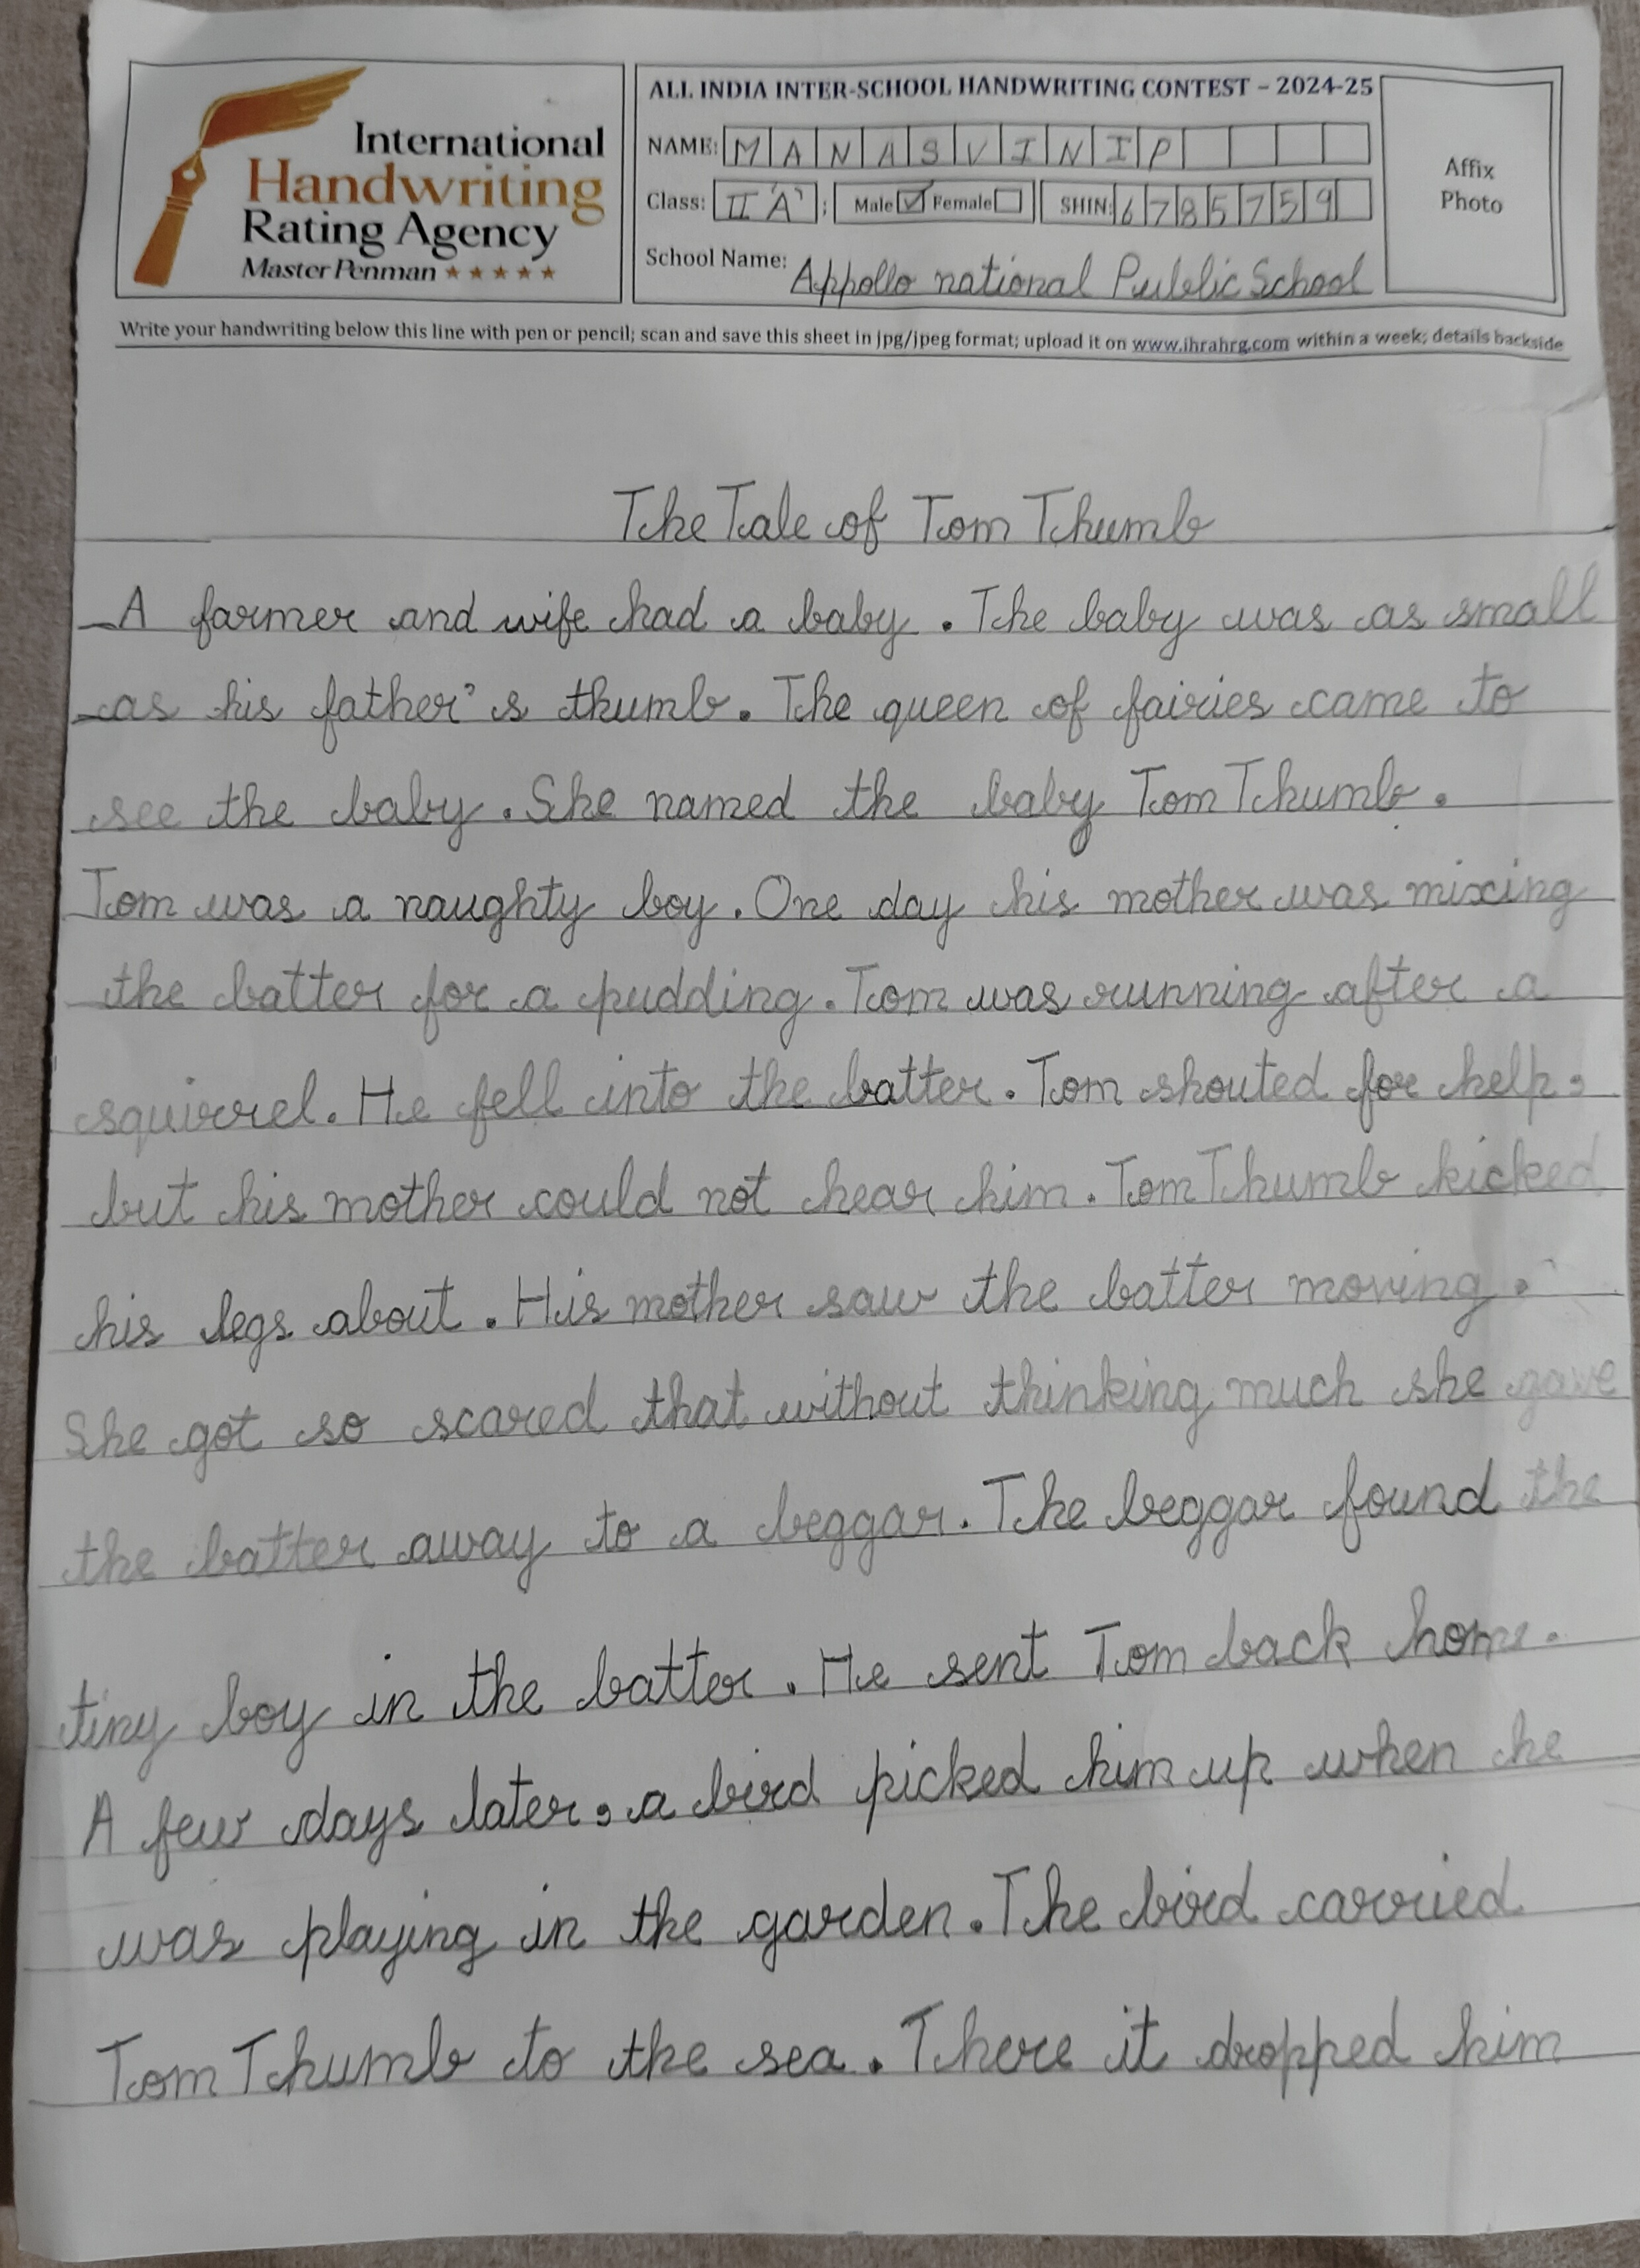 International
Handwriting
Rating Agency
Master Penman ★★★★★
ALL INDIA INTER-SCHOOL HANDWRITING CONTEST – 2024-25
NAME: MANASVINIP
Class: II 'A' ; Male ☑ Female ☐ SHIN: 6785759
School Name: Appollo national Public School
Affix
Photo
Write your handwriting below this line with pen or pencil; scan and save this sheet in jpg/jpeg format; upload it on www.ihrahrg.com within a week; details backside
The Tale of Tom Thumb
A farmer and wife had a baby. The baby was as small
as his father's thumb. The queen of fairies came to
see the baby. She named the baby Tom Thumb.
Tom was a naughty boy. One day his mother was mixing
the batter for a pudding. Tom was running after a
squirrel. He fell into the batter. Tom shouted for help,
but his mother could not hear him. Tom Thumb kicked
his legs about. His mother saw the batter moving.
She got so scared that without thinking much she gave
the batter away to a beggar. The beggar found the
tiny boy in the batter. He sent Tom back home.
A few days later, a bird picked him up when he
was playing in the garden. The bird carried
Tom Thumb to the sea. There it dropped him